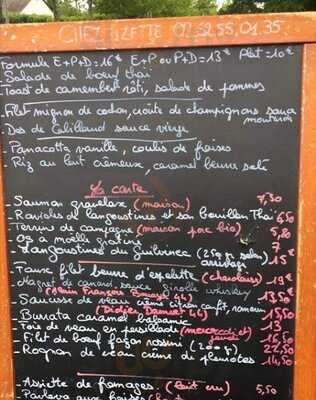 CHEZ LIZETTE 02.52.55.01.35
Formule E+P+D=16€ E+P ou P+D=13€ Plat=10€
- Salade de boeuf thaï
- Toast de camembert rôti, salade de pommes
- Filet mignon de cochon, croûte de champignons sauce moutarde
- Dos de Cabillaud sauce vierge
- Panacotta vanille, coulis de fraises
- Riz au lait crémeux, caramel beurre salé
La carte
- Saumon gravelax (maison) 7,30
- Ravioles de langoustines et son bouillon Thaï 6,50
- Terrine de campagne (maison porc bio) 5,80
- Os à moëlle gratiné 7
- Langoustines du Guilvinec (250g selon arrivage) 15€
- Faux filet beurre d'espelette (charolais) 19€
- Magret de canard sauce girolle whiskey
- Saucisse de veau crème citron confit, romarin 13,50
(Didier Damset 44)
- Burrata caramel balsamic 15,50
- Foie de veau en persillade (mercredi et jeudi) 13
- Filet de bœuf façon rossini (200g) 16,50
- Rognon de veau crème de pleurotes 22,50
14,50
- Assiette de fromages. (lait cru) 5,50
- Pavlova aux fraises